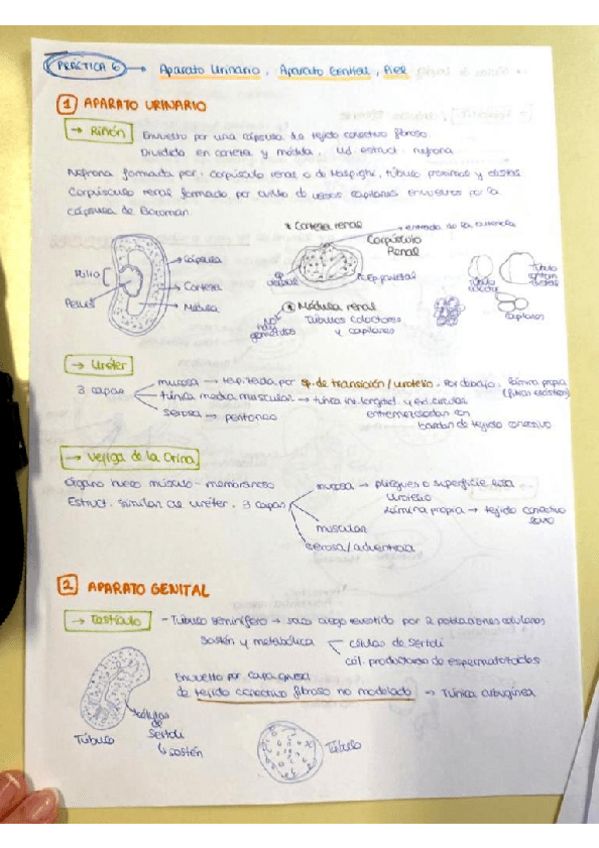 PRÁCTICA 6 → Aparato Urinario, Aparato Genital, Piel
1 APARATO URINARIO
→ Riñón Envuelto por una cápsula de tejido conectivo fibroso.
Dividida en corteza y médula. Ud. estruct. nefrona
Nefrona formada por: corpúsculo renal o de Malpighi, túbulo proximal y distal
Corpúsculo renal formado por ovillo de vasos capilares envueltos por la
cápsula de Bowman
* Corteza renal
entrada de la arteriola
Corpúsculo
Renal
Hilio
Pelvis
Cápsula
Corteza
Médula
Ep. parietal
Túbulo
Túbulo
capilares
* Médula renal
No hay
glomérulos
Túbulos colectores
y capilares
→ Uréter
3 capas
mucosa → tapizada por ep. de transición / urotelio. Por debajo, lámina propia
(fibras elásticas)
túnica media muscular → túnica int. longitud. y ext. circular
entremezcladas con
bandas de tejido conectivo
serosa → peritoneo
→ Vejiga de la Orina
Órgano hueco músculo-membranoso
Estruct. similar al uréter. 3 capas
mucosa → pliegues o superficie lisa
Urotelio
Lámina propia → tejido conectivo
laxo
muscular
serosa / adventicia
2 APARATO GENITAL
→ Testículo - Túbulo seminífero → saco ciego revestido por 2 poblaciones celulares
Sostén y metabólica
células de Sertoli
cél. productoras de espermatozoides
Envuelto por capa gruesa
de tejido conectivo fibroso no modelado → Túnica albugínea
Túbulo
células
de
Sertoli
↳ sostén
Túbulo